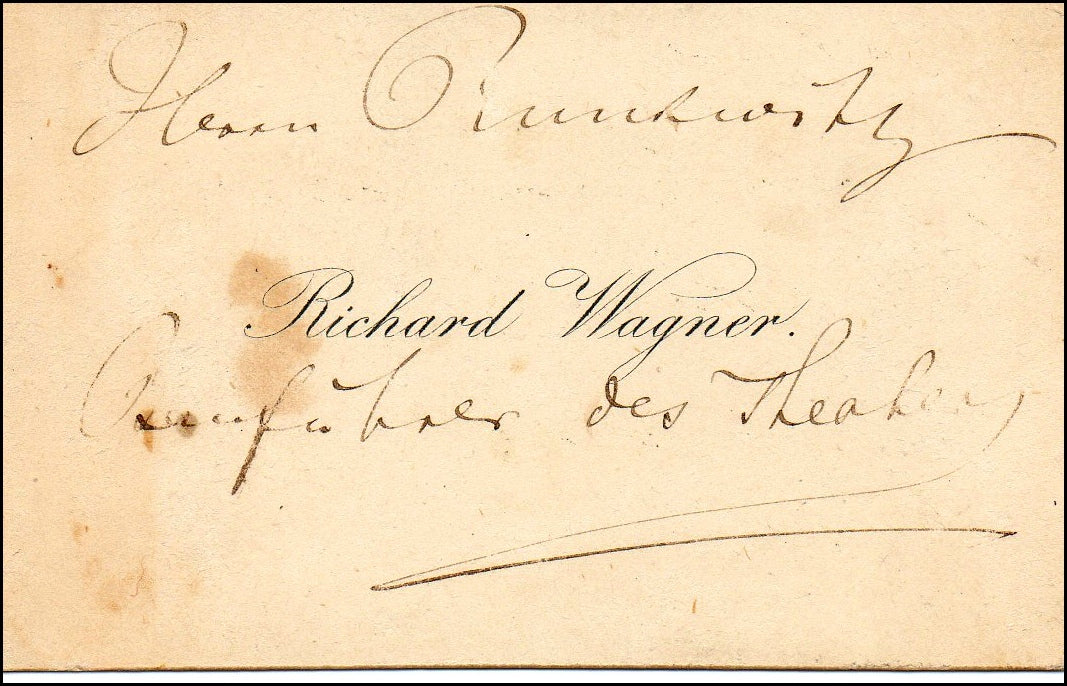 Herrn Runkwitz
Richard Wagner.
Bauführer des Theaters